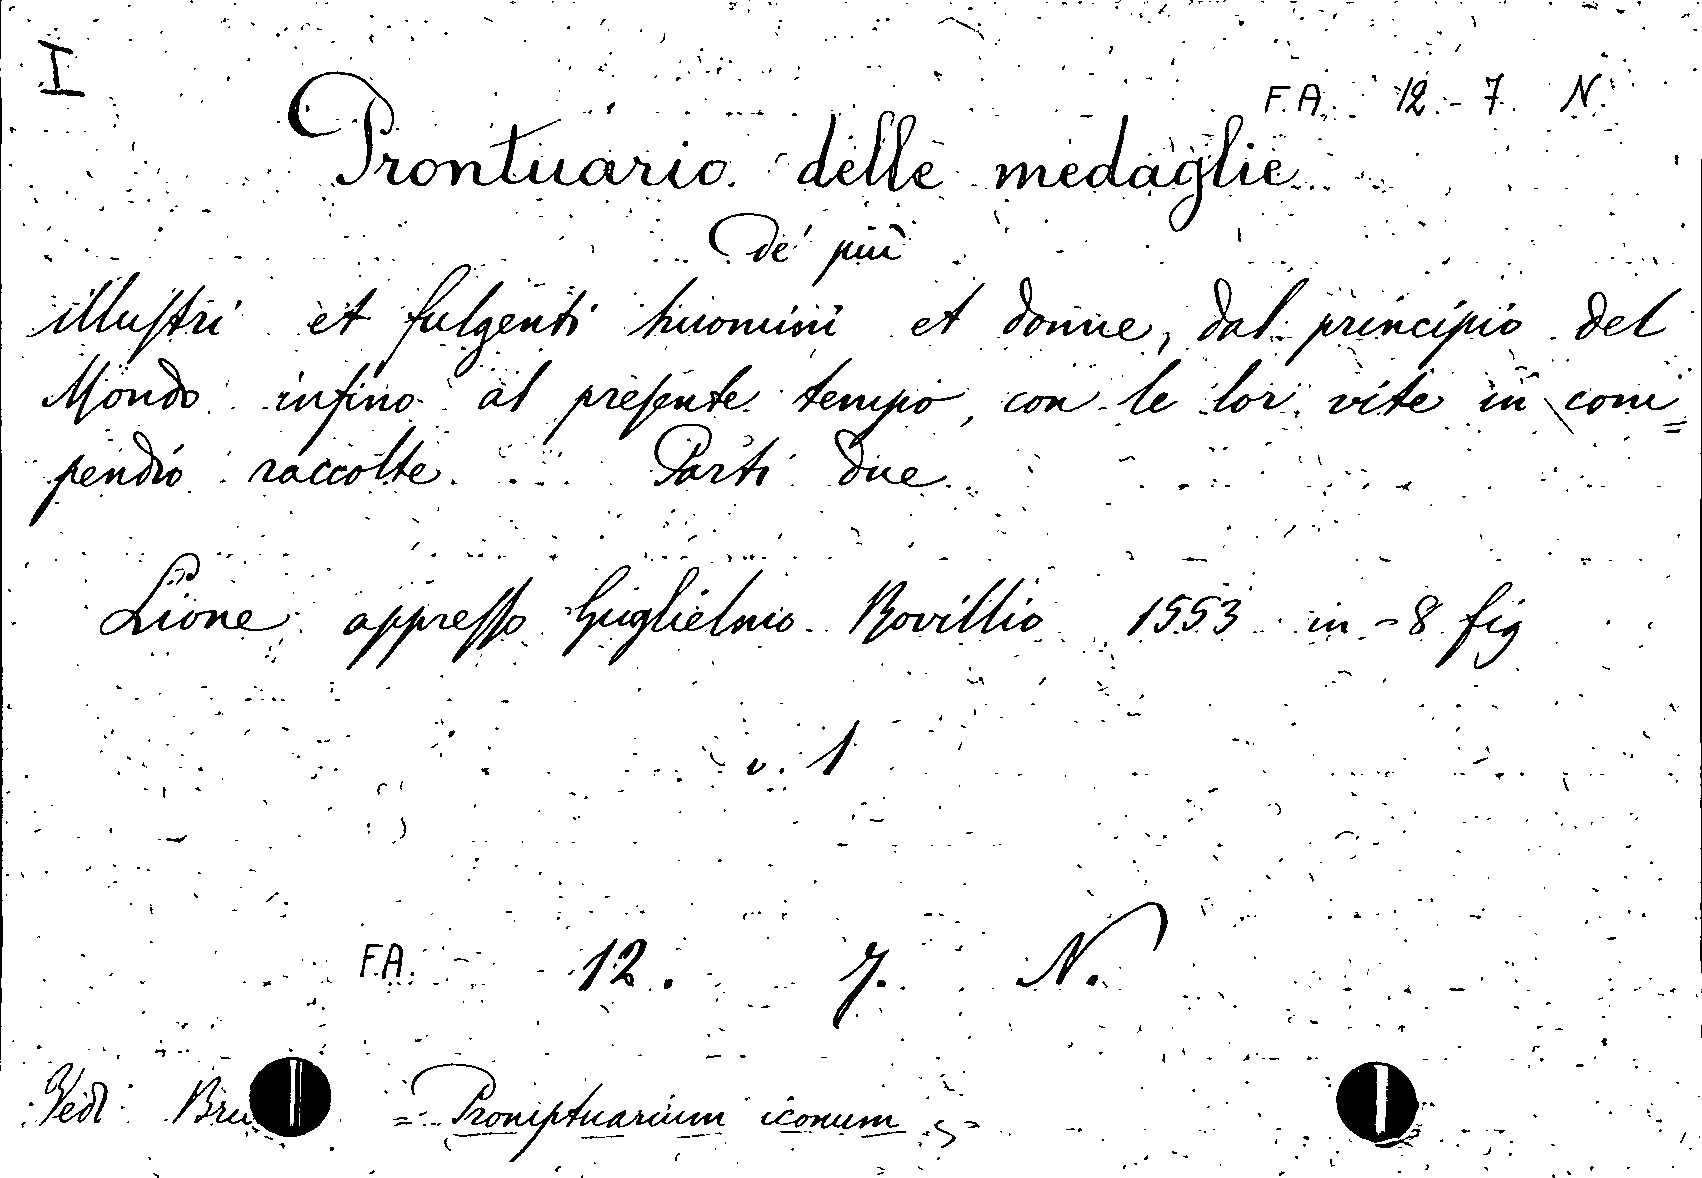 I
F.A. 12-7 N.
Prontuario delle medaglie
de' più
illuſtri et fulgenti huomini et donne, dal principio del
Mondo infino al preſente tempo, con le lor vite in com=
pendio raccolte. Parti due
Lione appreſſo Guglielmo Rovillio 1553 in-8 fig
v. 1
F.A. 12. 7. N.
Vedi Bru = Promptuarium iconum =